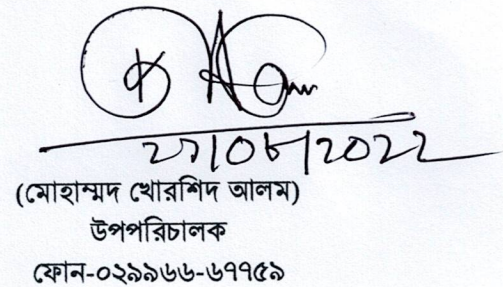 ২১/০৮/২০২২
(মোহাম্মদ খোরশিদ আলম)
উপপরিচালক
ফোন-০২৯৯৬৬-৬৭৭৫৯